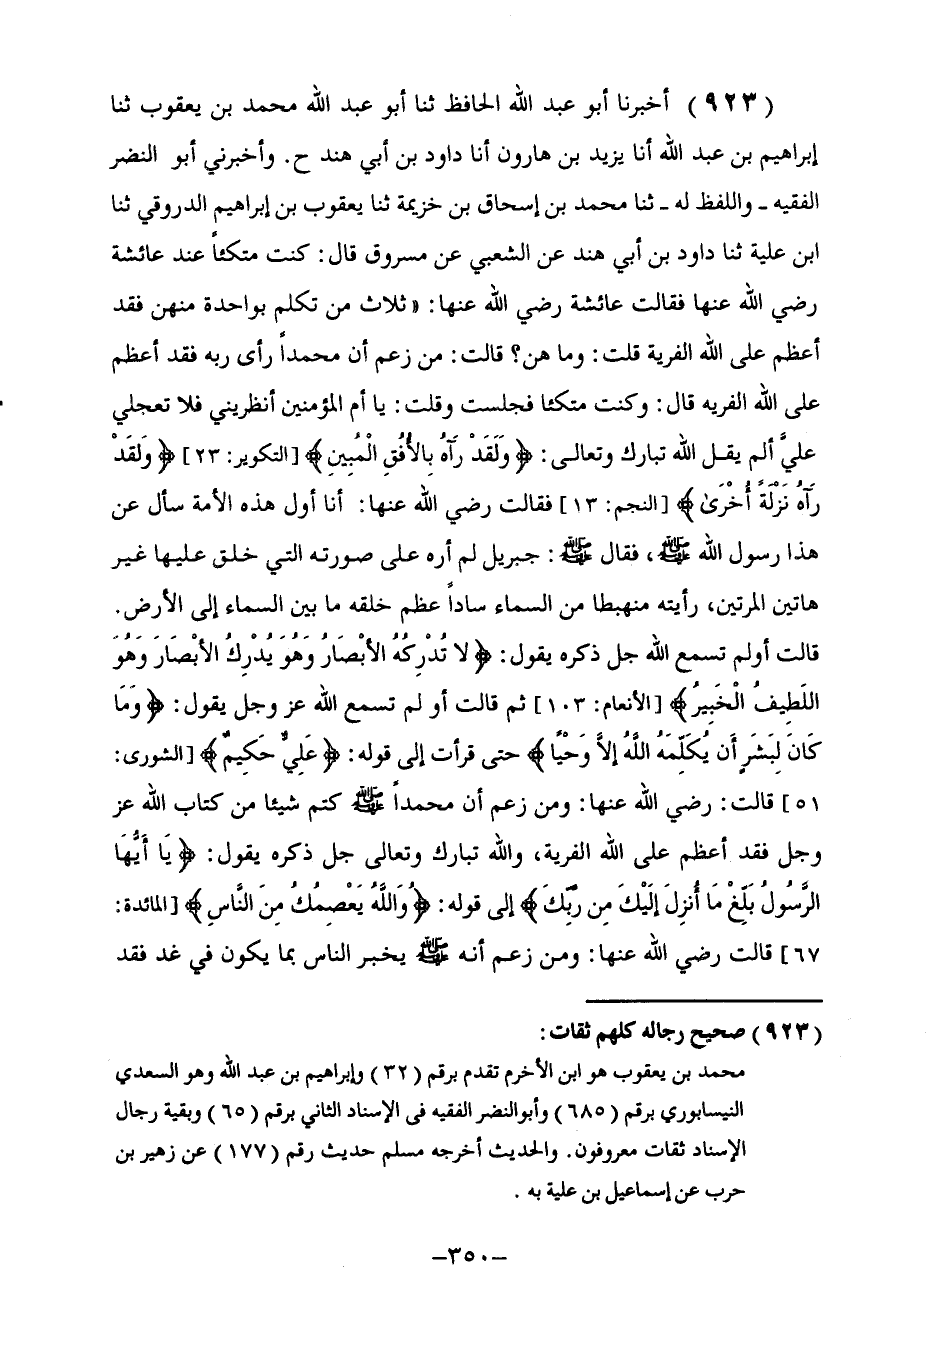 (٩٢٣) أخبرنا أبو عبد الله الحافظ ثنا أبو عبد الله محمد بن يعقوب ثنا
إبراهيم بن عبد الله أنا يزيد بن هارون أنا داود بن أبي هند ح. وأخبرني أبو النضر
الفقيه ـ واللفظ له ـ ثنا محمد بن إسحاق بن خزيمة ثنا يعقوب بن إبراهيم الدروقي ثنا
ابن علية ثنا داود بن أبي هند عن الشعبي عن مسروق قال: كنت متكئاً عند عائشة
رضي الله عنها فقالت عائشة رضي الله عنها: «ثلاث من تكلم بواحدة منهن فقد
أعظم على الله الفرية قلت: وما هن؟ قالت: من زعم أن محمداً رأى ربه فقد أعظم
على الله الفريه قال: وكنت متكئا فجلست وقلت: يا أم المؤمنين أنظريني فلا تعجلي
عليَّ ألم يقل الله تبارك وتعالى: ﴿وَلَقَدْ رَآهُ بِالأُفُقِ الْمُبِينِ﴾ [التكوير: ٢٣] ﴿وَلَقَدْ
رَآهُ نَزْلَةً أُخْرَىٰ﴾ [النجم: ١٣] فقالت رضي الله عنها: أنا أول هذه الأمة سأل عن
هذا رسول الله ﷺ، فقال ﷺ: جبريل لم أره على صورته التي خلق عليها غير
هاتين المرتين، رأيته منهبطا من السماء ساداً عظم خلقه ما بين السماء إلى الأرض.
قالت أولم تسمع الله جل ذكره يقول: ﴿لا تُدْرِكُهُ الأَبْصَارُ وَهُوَ يُدْرِكُ الأَبْصَارَ وَهُوَ
اللَّطِيفُ الْخَبِيرُ﴾ [الأنعام: ١٠٣] ثم قالت أو لم تسمع الله عز وجل يقول: ﴿وَمَا
كَانَ لِبَشَرٍ أَن يُكَلِّمَهُ اللَّهُ إِلاَّ وَحْيًا﴾ حتى قرأت إلى قوله: ﴿عَلِيٌّ حَكِيمٌ﴾ [الشورى:
٥١] قالت: رضي الله عنها: ومن زعم أن محمداً ﷺ كتم شيئا من كتاب الله عز
وجل فقد أعظم على الله الفرية، والله تبارك وتعالى جل ذكره يقول: ﴿يَا أَيُّهَا
الرَّسُولُ بَلِّغْ مَا أُنزِلَ إِلَيْكَ مِن رَّبِّكَ﴾ إلى قوله: ﴿وَاللَّهُ يَعْصِمُكَ مِنَ النَّاسِ﴾ [المائدة:
٦٧] قالت رضي الله عنها: ومن زعم أنه ﷺ يخبر الناس بما يكون في غد فقد
(٩٢٣) صحيح رجاله كلهم ثقات:
محمد بن يعقوب هو ابن الأخرم تقدم برقم (٣٢) وإبراهيم بن عبد الله وهو السعدي
النيسابوري برقم (٦٨٥) وأبوالنضر الفقيه فى الإسناد الثاني برقم (٦٥) وبقية رجال
الإسناد ثقات معروفون. والحديث أخرجه مسلم حديث رقم (١٧٧) عن زهير بن
حرب عن إسماعيل بن علية به .
–٣٥٠–